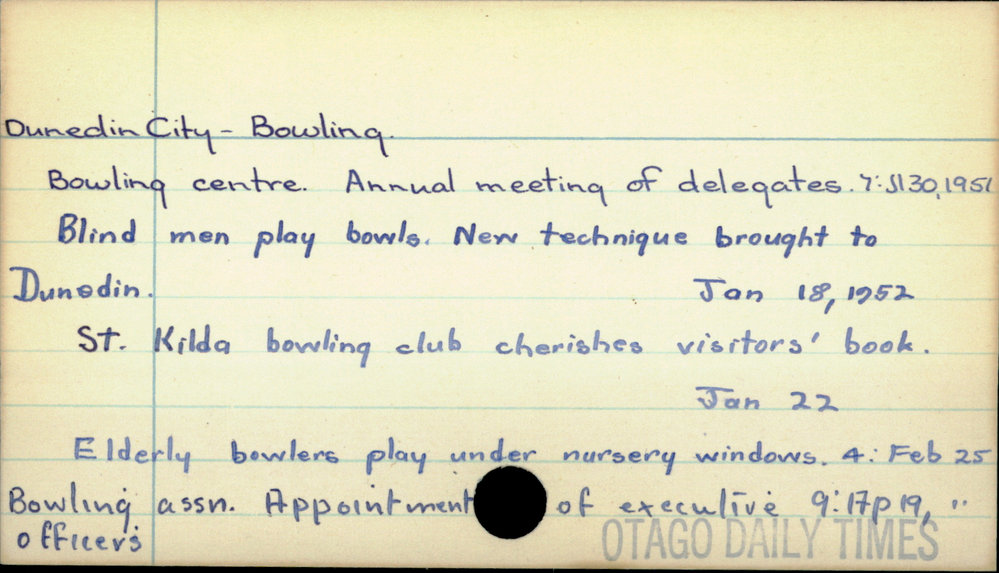 Dunedin City - Bowling.
Bowling centre. Annual meeting of delegates. 7:Jl30,1951
Blind men play bowls. New technique brought to
Dunedin. Jan 18, 1952
St. Kilda bowling club cherishes visitors' book.
Jan 22
Elderly bowlers play under nursery windows. 4: Feb 25
Bowling assn. Appointment of executive 9:17 Ap 19, "
officers
OTAGO DAILY TIMES